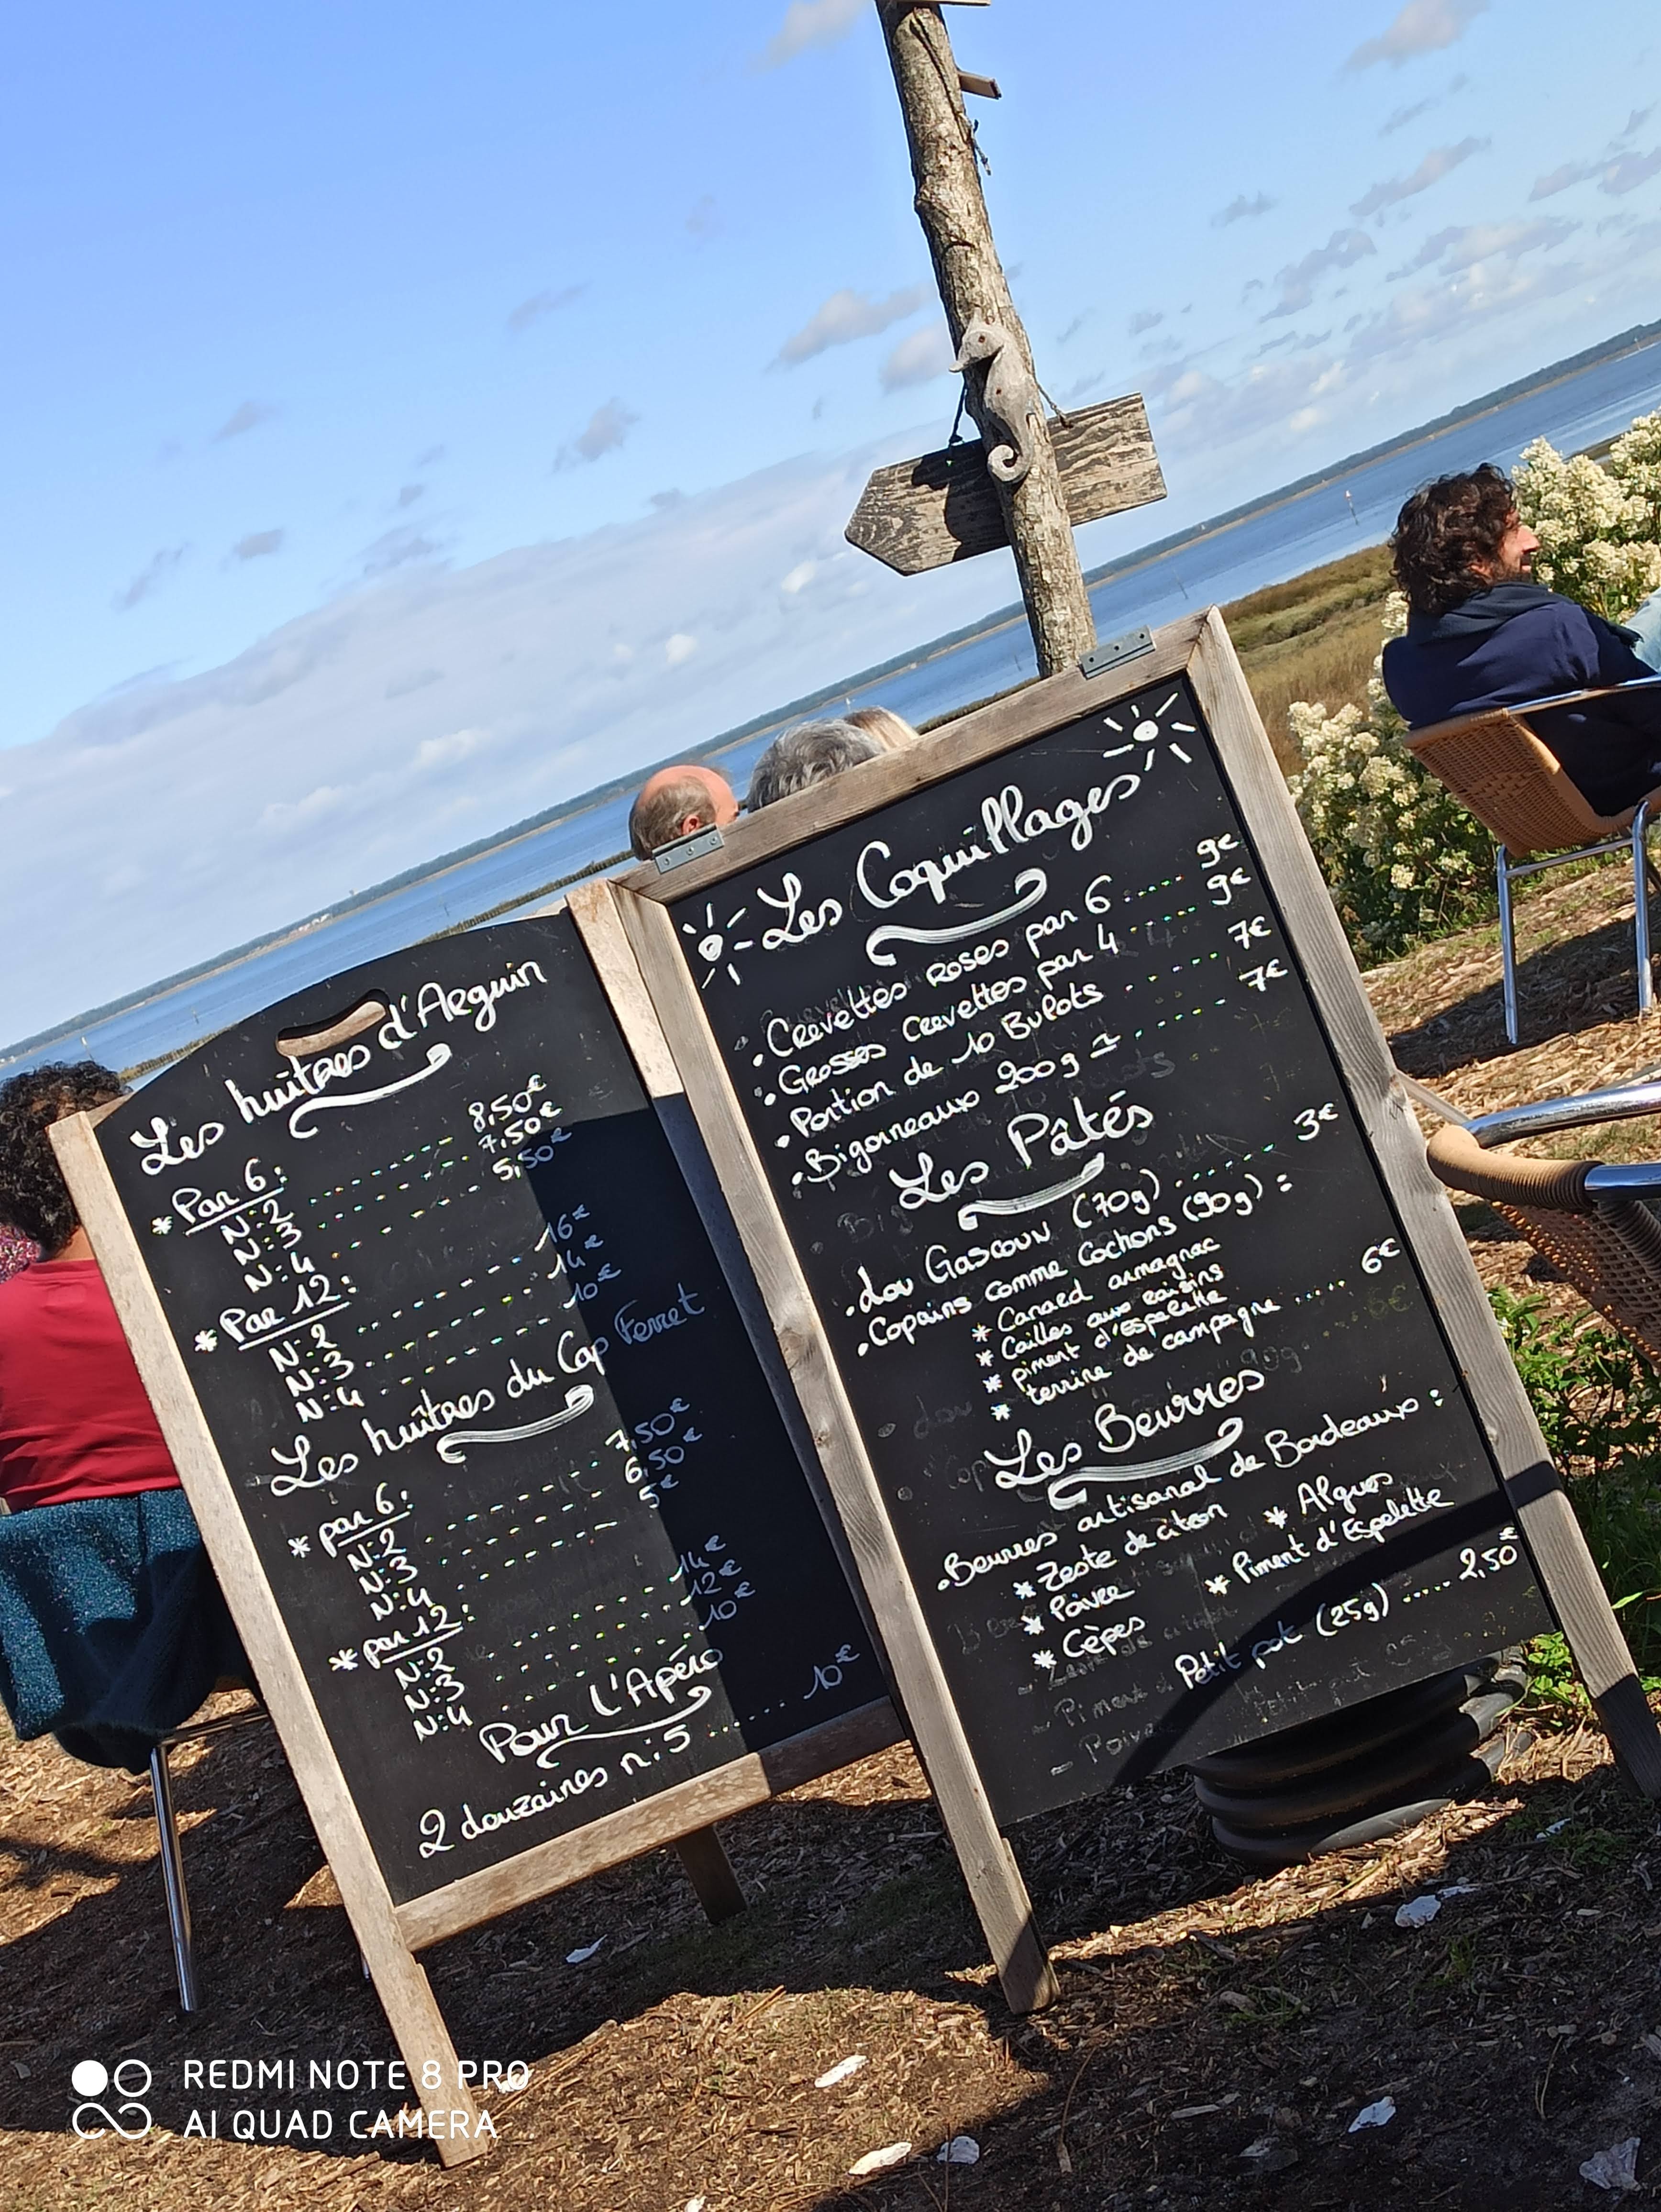 Les huîtres d'Arguin
* Par 6:
N:2 ........ 8,50€
N:3 ........ 7,50€
N:4 ........ 5,50€
* Par 12:
N:2 ........ 16€
N:3 ........ 14€
N:4 ........ 10€
Les huîtres du Cap Ferret
* par 6:
N:2 ........ 7,50€
N:3 ........ 6,50€
N:4 ........ 5€
* par 12:
N:2 ........ 14€
N:3 ........ 12€
N:4 ........ 10€
Pour l'Apéro
2 douzaines n:5 ...... 10€
Les Coquillages
. Crevettes Roses par 6 ...... 9€
. Grosses crevettes par 4 ...... 9€
. Portion de 10 Bulots ...... 7€
. Bigorneaux 200g ...... 7€
Les Pâtés
. Lou Gascoun (70g) ...... 3€
. Copains comme Cochons (90g) :
* Canard armagnac
* Cailles aux raisins
* piment d'Espelette
* terrine de campagne ...... 6€
Les Beurres
. Beurres artisanal de Bordeaux :
* Zeste de citron * Algues
* Poivre * Piment d'Espelette
* Cèpes
Petit pot (25g) ..... 2,50€
REDMI NOTE 8 PRO
AI QUAD CAMERA